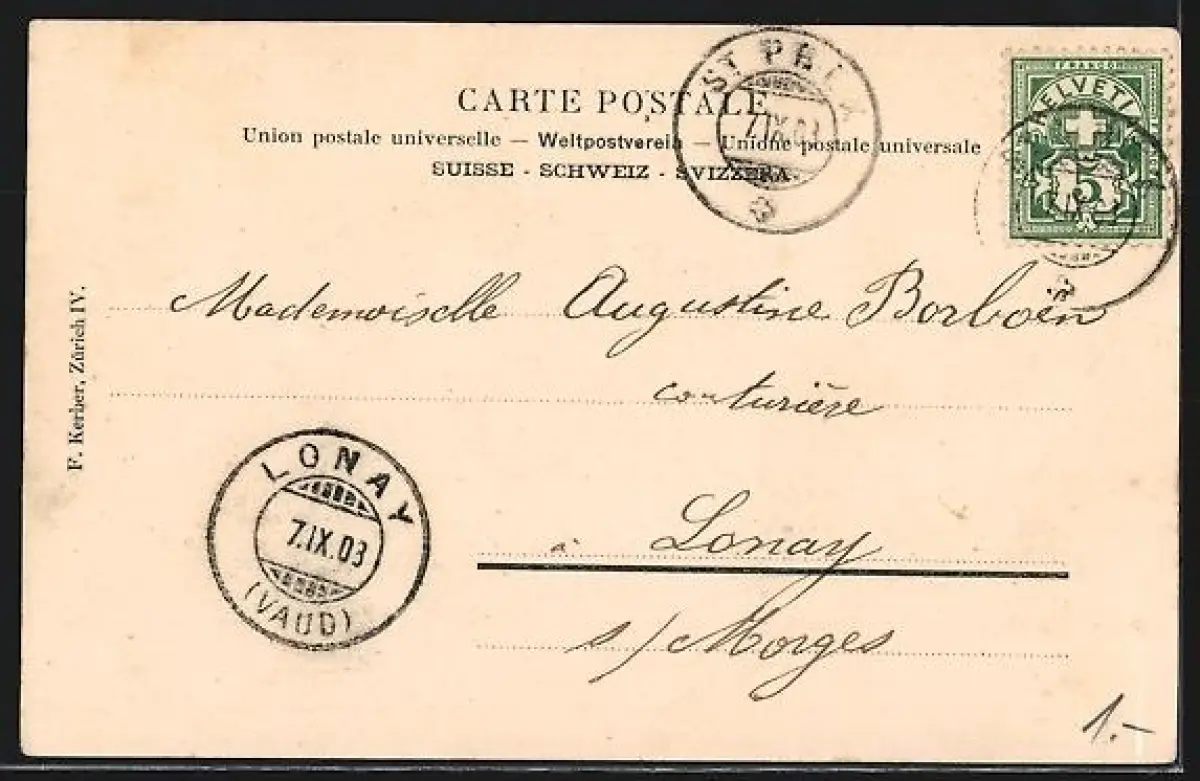 CARTE POSTALE
Union postale universelle — Weltpostverein — Unione postale universale
SUISSE - SCHWEIZ - SVIZZERA.
ST PREX
7.IX.03
FRANCO
HELVETIA
5
F. Kerber, Zürich IV.
Mademoiselle Augustine Borboën
couturière
à Lonay
s/ Morges
LONAY
7.IX.03
(VAUD)
1.-